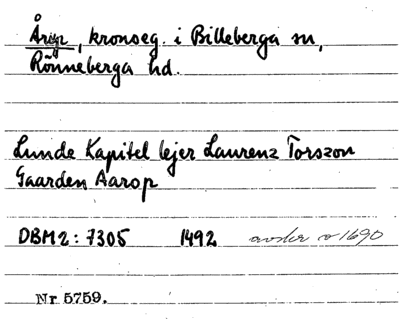 Årup, kronoeg. i Billeberga sn,
Rönneberga hd.
Lunde Kapitel lejer Laurenz Torszon
Gaarden Aarop
DBM2: 7305 1492 1690
Nr 5759.